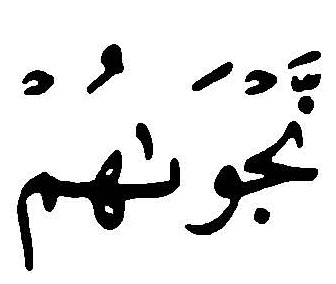 نَّجْوَىٰهُمْ